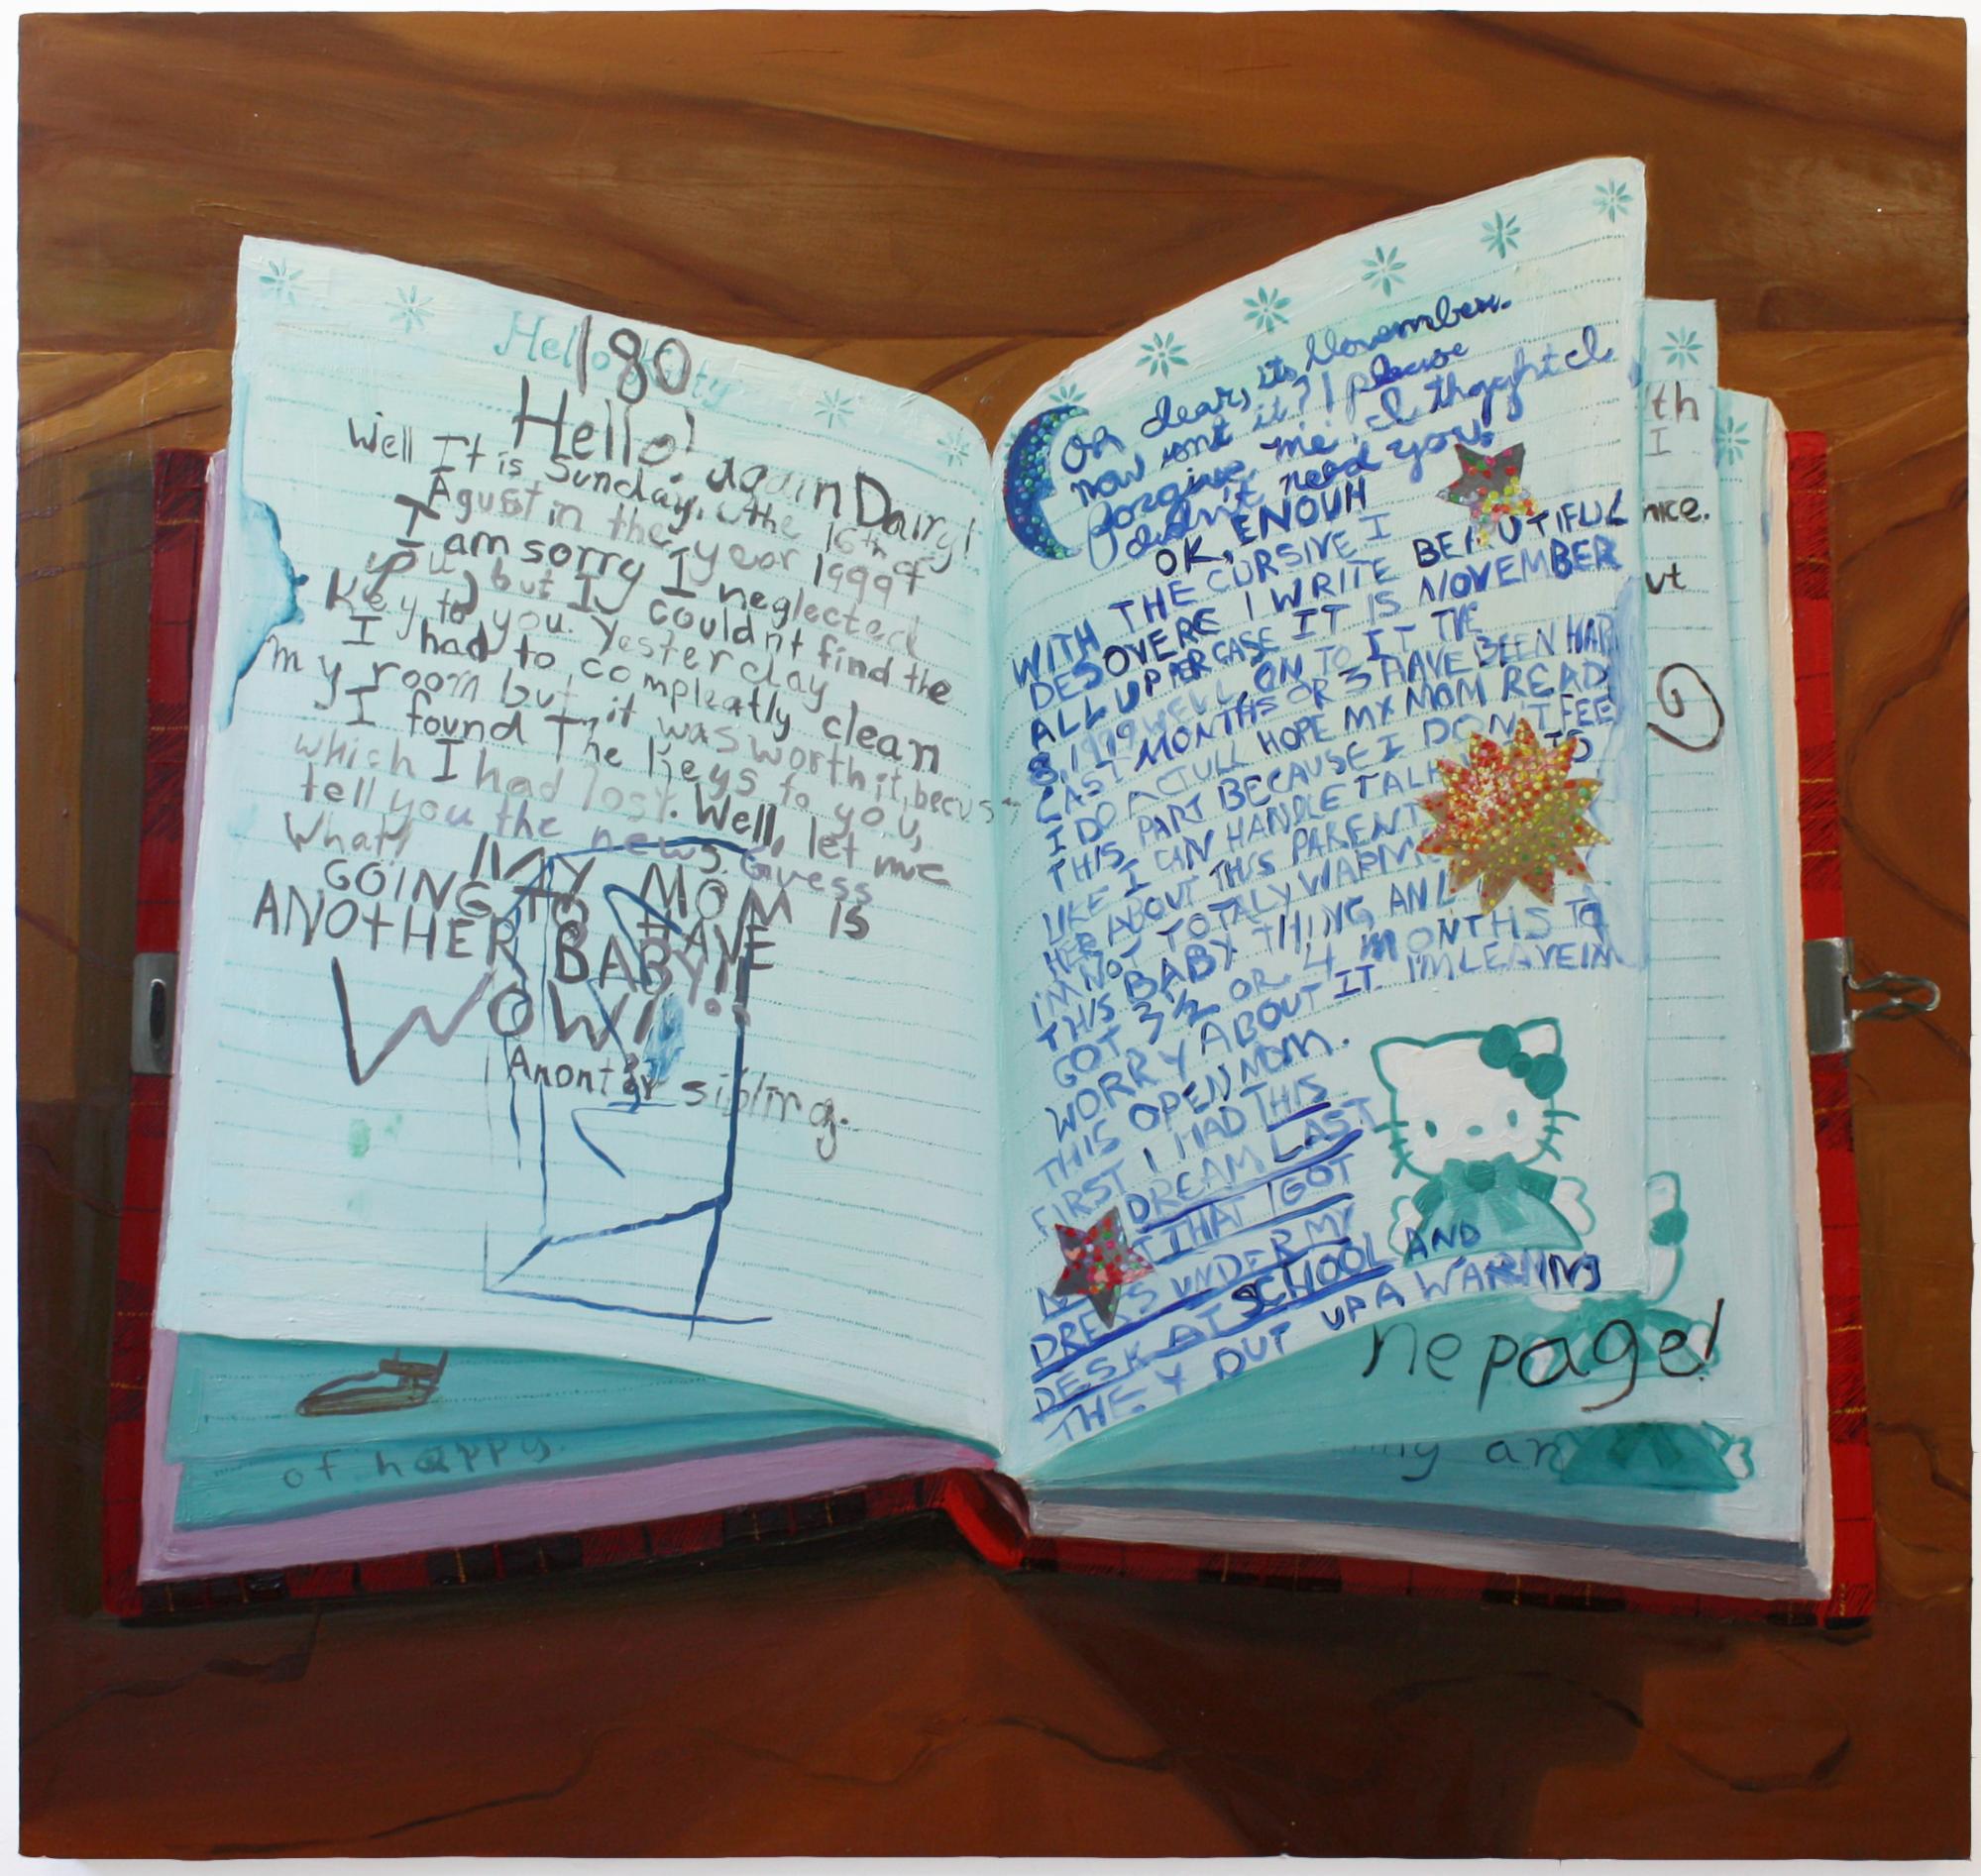 Hello Kitty
180
Hello! again Dairy!
Well It is Sunday, the 16th of
Agust in the year 1999
I am sorry I neglected
you, but I couldn't find the
key to you. Yesterday
I had to compleatly clean
my room but it was worth it, becus
I found The keys to you,
which I had lost. Well, let me
tell you the news. Guess
What? MY MOM IS
GOING TO HAVE
ANOTHER BABY!!
WOW!
Anonter sibling.
of happy.
Oh dear, its November.
now isnt it? I please
forgive me, I thoght I
didn't need you!
OK, ENOUH
WITH THE CURSIVE I
DESOVERE I WRITE BEAUTIFUL
ALL UPPER CASE IT IS NOVEMBER
8, 1999 WELL ON TO IT THE
LAST MONTHS OR 3 HAVE BEEN HAR
I DO ACTULL HOPE MY MOM READ
THIS PART BECAUSE I DON'T FEE
LIKE I CAN HANDLE TALK TO
HER ABOUT THIS PARENT
I'M NOT TOTALY WARM
THIS BABY THING, AND
GOT 3 1/2 OR 4 MONTHS TO
WORRY ABOUT IT. I'M LEAVEIN
THIS OPEN MOM.
FIRST I HAD THIS
DREAM LAST
THAT I GOT
DRESS UNDER MY
DESK AT SCHOOL AND
THEY PUT UP A WARNING
th
I
nice.
ut
ne page!
ny an